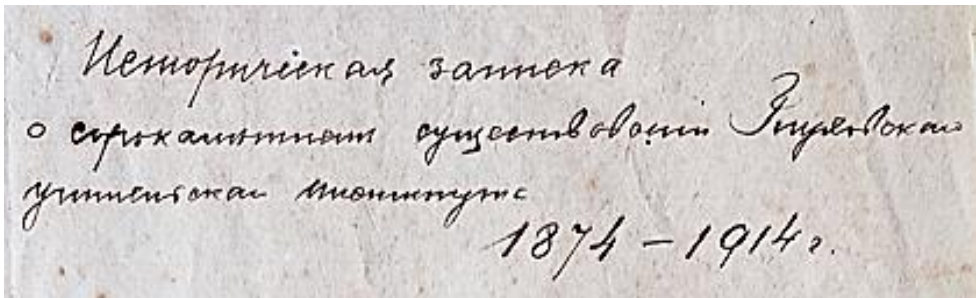 Историческая записка
о сорокалѣтнем существованіи
учительскаго института
1874 – 1914 г.